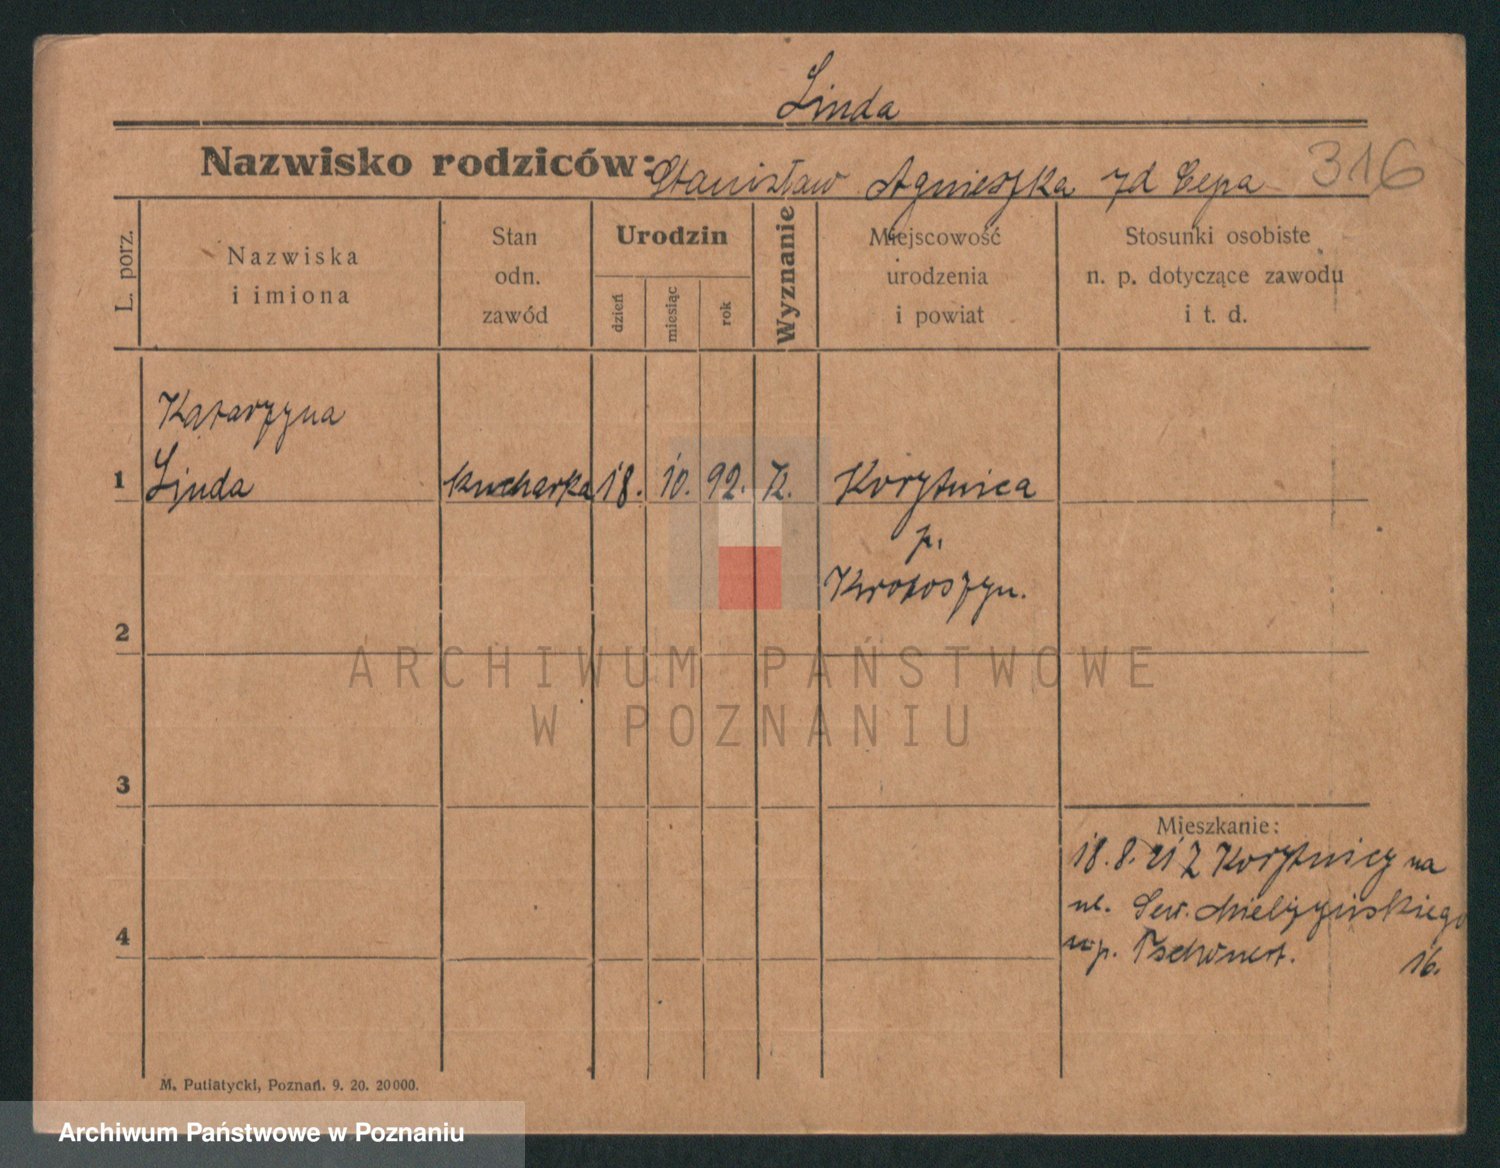 Linda
Nazwisko rodziców: Stanisław Agnieszka zd Cepa 316
L. porz.
Nazwiska
i imiona
Stan
odn.
zawód
Urodzin
dzień
miesiąc
rok
Wyznanie
Miejscowość
urodzenia
i powiat
Stosunki osobiste
n. p. dotyczące zawodu
i t. d.
Katarzyna
1 Linda kucharka 18. 10. 92. K. Korytnica
p.
Krotoszyn.
2
ARCHIWUM PAŃSTWOWE
W POZNANIU
3
Mieszkanie:
18.8.21 Z Korytnicy na
ul. Sew. Mielżyńskiego
16.
4
M. Putiatycki, Poznań. 9. 20. 20000.
Archiwum Państwowe w Poznaniu